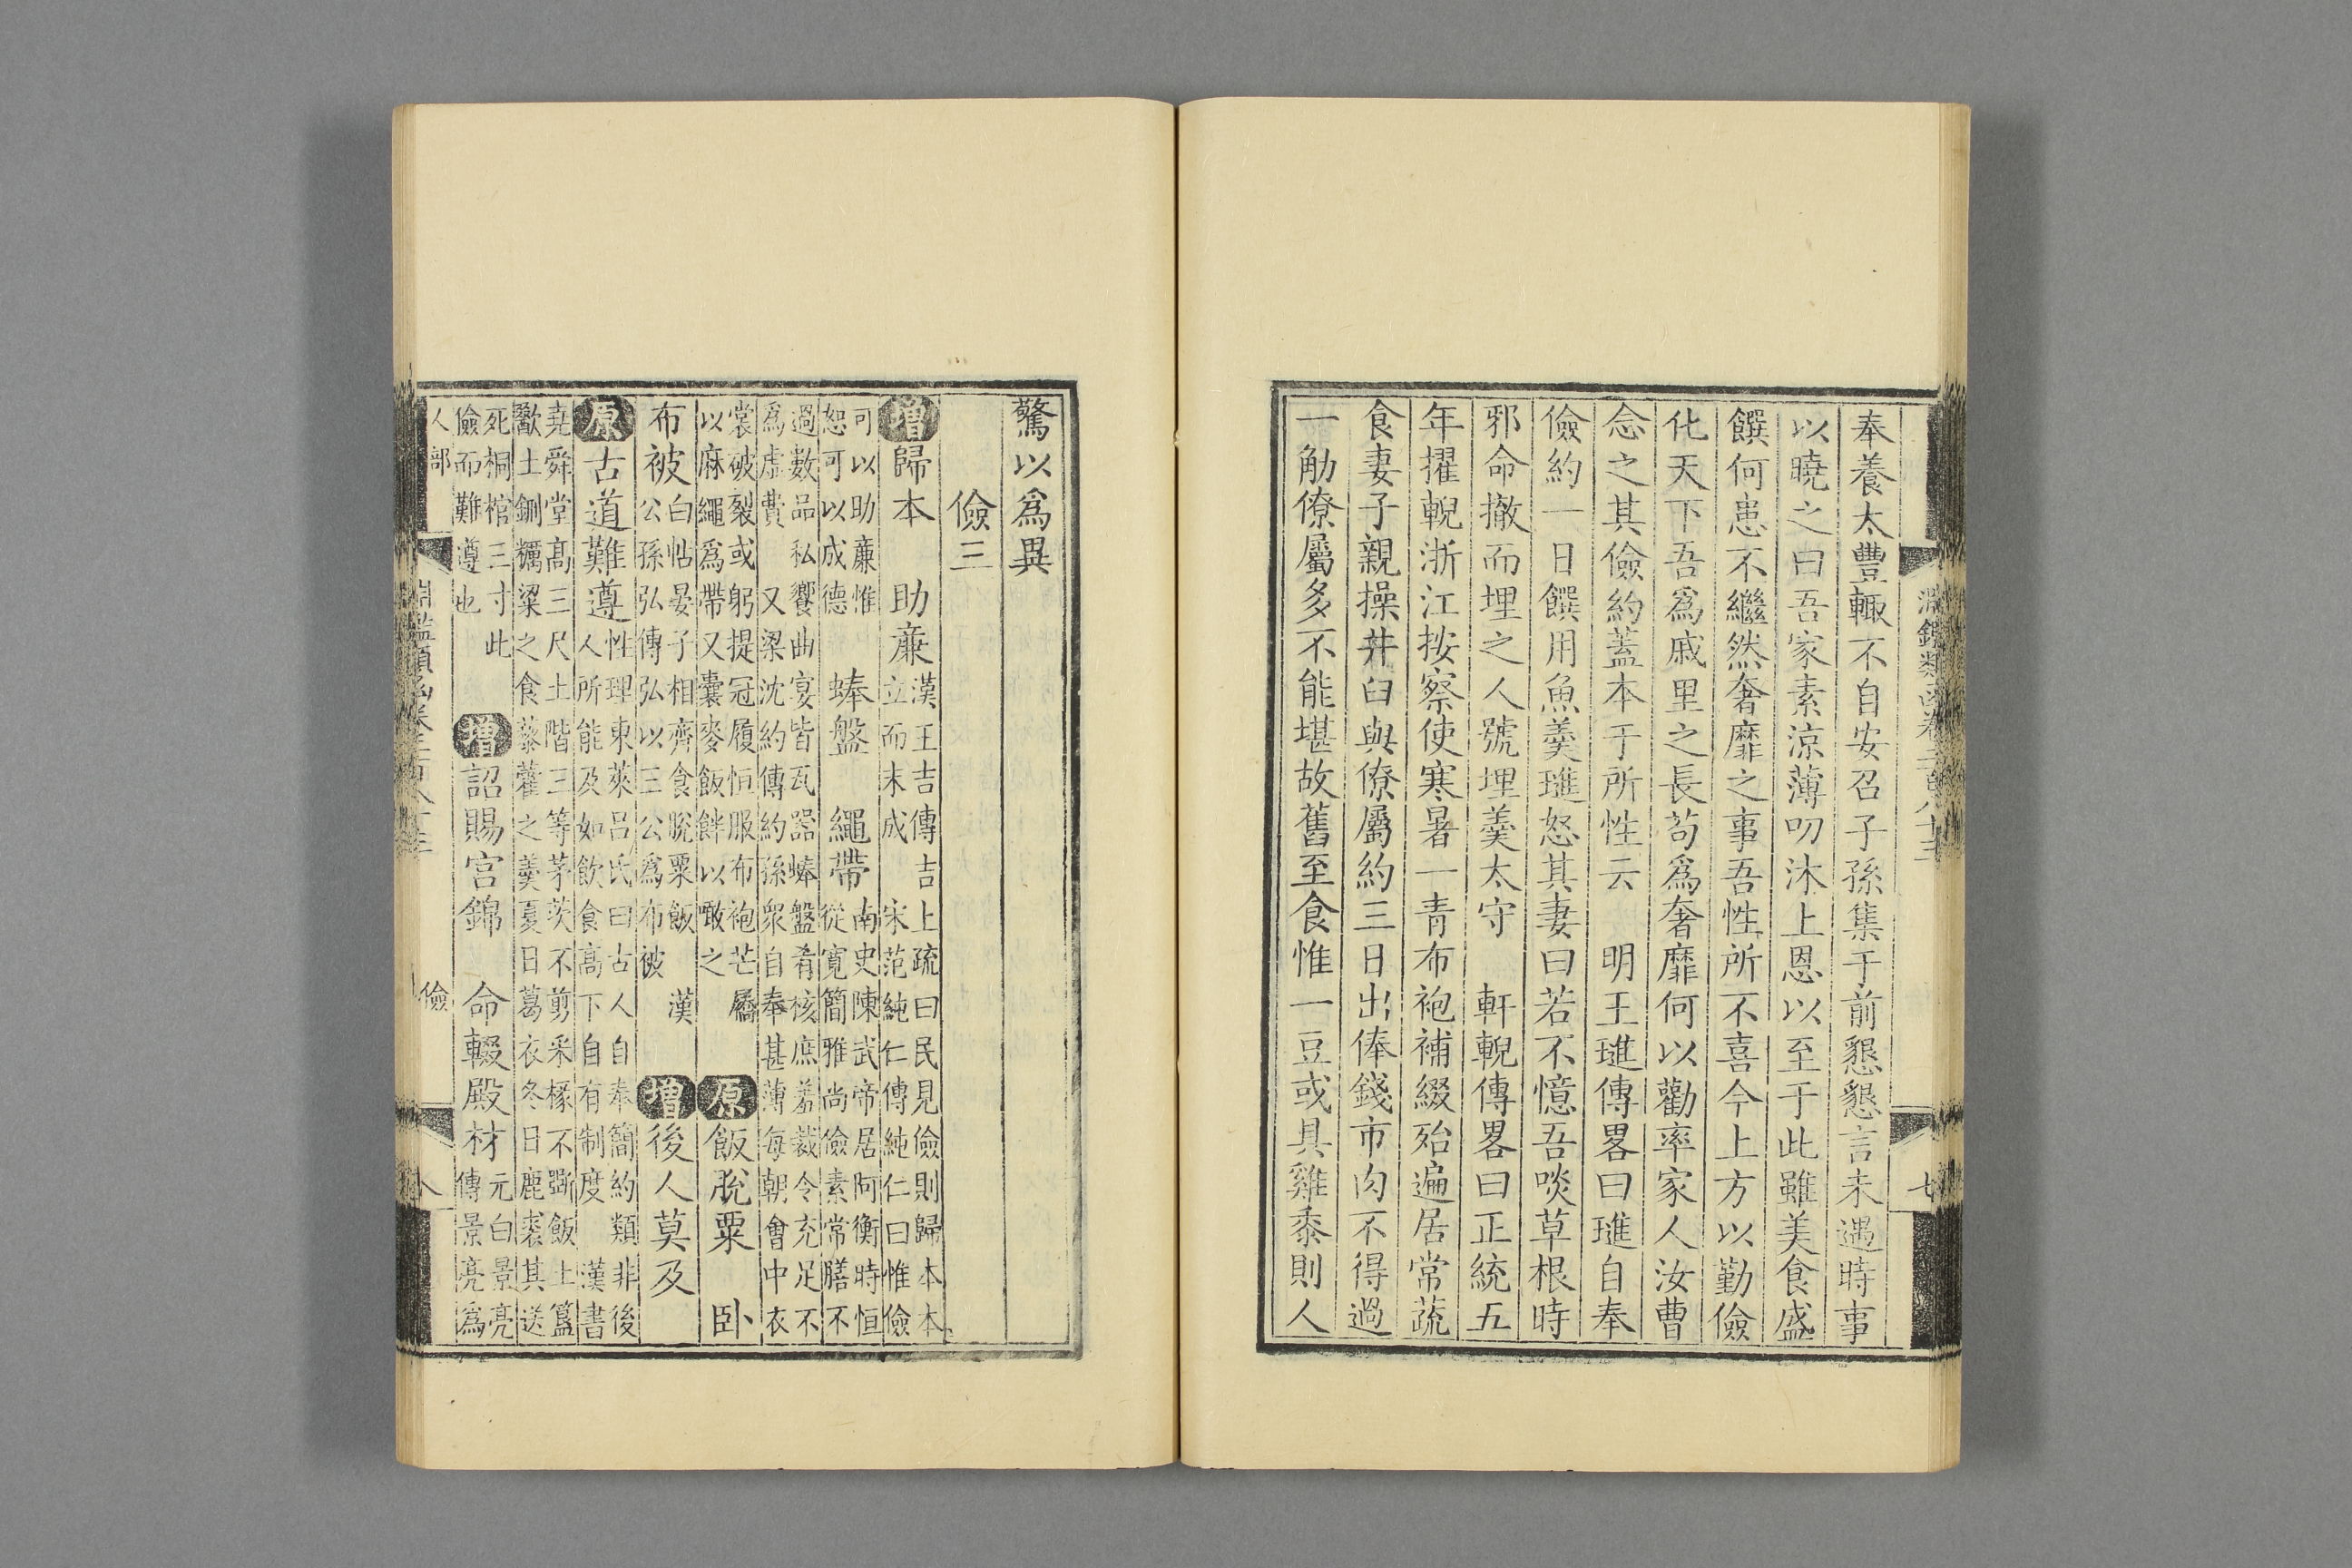 淵鑑類函卷二百八十三 七
奉養太豐輒不自安召子孫集于前懇懇言未遇時事
以曉之曰吾家素涼薄叨沐上恩以至于此雖美食盛
饌何患不繼然奢靡之事吾性所不喜今上方以勤儉
化天下吾爲戚里之長苟爲奢靡何以勸率家人汝曹
念之其儉約蓋本于所性云 明王璡傳畧曰璡自奉
儉約一日饌用魚羹璡怒其妻曰若不憶吾啖草根時
邪命撤而埋之人號埋羹太守 軒輗傳畧曰正統五
年擢輗浙江按察使寒暑一青布袍補綴殆遍居常蔬
食妻子親操井臼與僚屬約三日出俸錢市肉不得過
一觔僚屬多不能堪故舊至食惟一豆或具雞黍則人
驚以爲異
儉三
增歸本 助廉
漢王吉傳吉上疏曰民見儉則歸本本
立而末成 宋范純仁傳純仁曰惟儉
可以助廉惟
恕可以成德
蜯盤 繩帶
南史陳武帝居阿衡時恒
從寬簡雅尚儉素常膳不
過數品私饗曲宴皆瓦器蜯盤肴核庶羞裁令充足不
爲虛費 又梁沈約傳約孫衆自奉甚薄每朝會中衣
裳破裂或躬提冠履恒服布袍芒屩
以麻繩爲帶又囊麥飯䬳以噉之
原飯脫粟 臥
布被
白帖晏子相齊食脫粟飯 漢
公孫弘傳弘以三公爲布被
增後人莫及
原古道難遵
性理東萊呂氏曰古人自奉簡約類非後
人所能及如飲食高下自有制度 漢書
堯舜堂高三尺土階三等茅茨不剪采椽不斲飯土簋
歠土鉶糲粱之食藜藿之羹夏日葛衣冬日鹿裘其送
死桐棺三寸此
儉而難遵也
增詔賜宮錦 命輟殿材
元白景亮
傳景亮爲
人部 儉 八